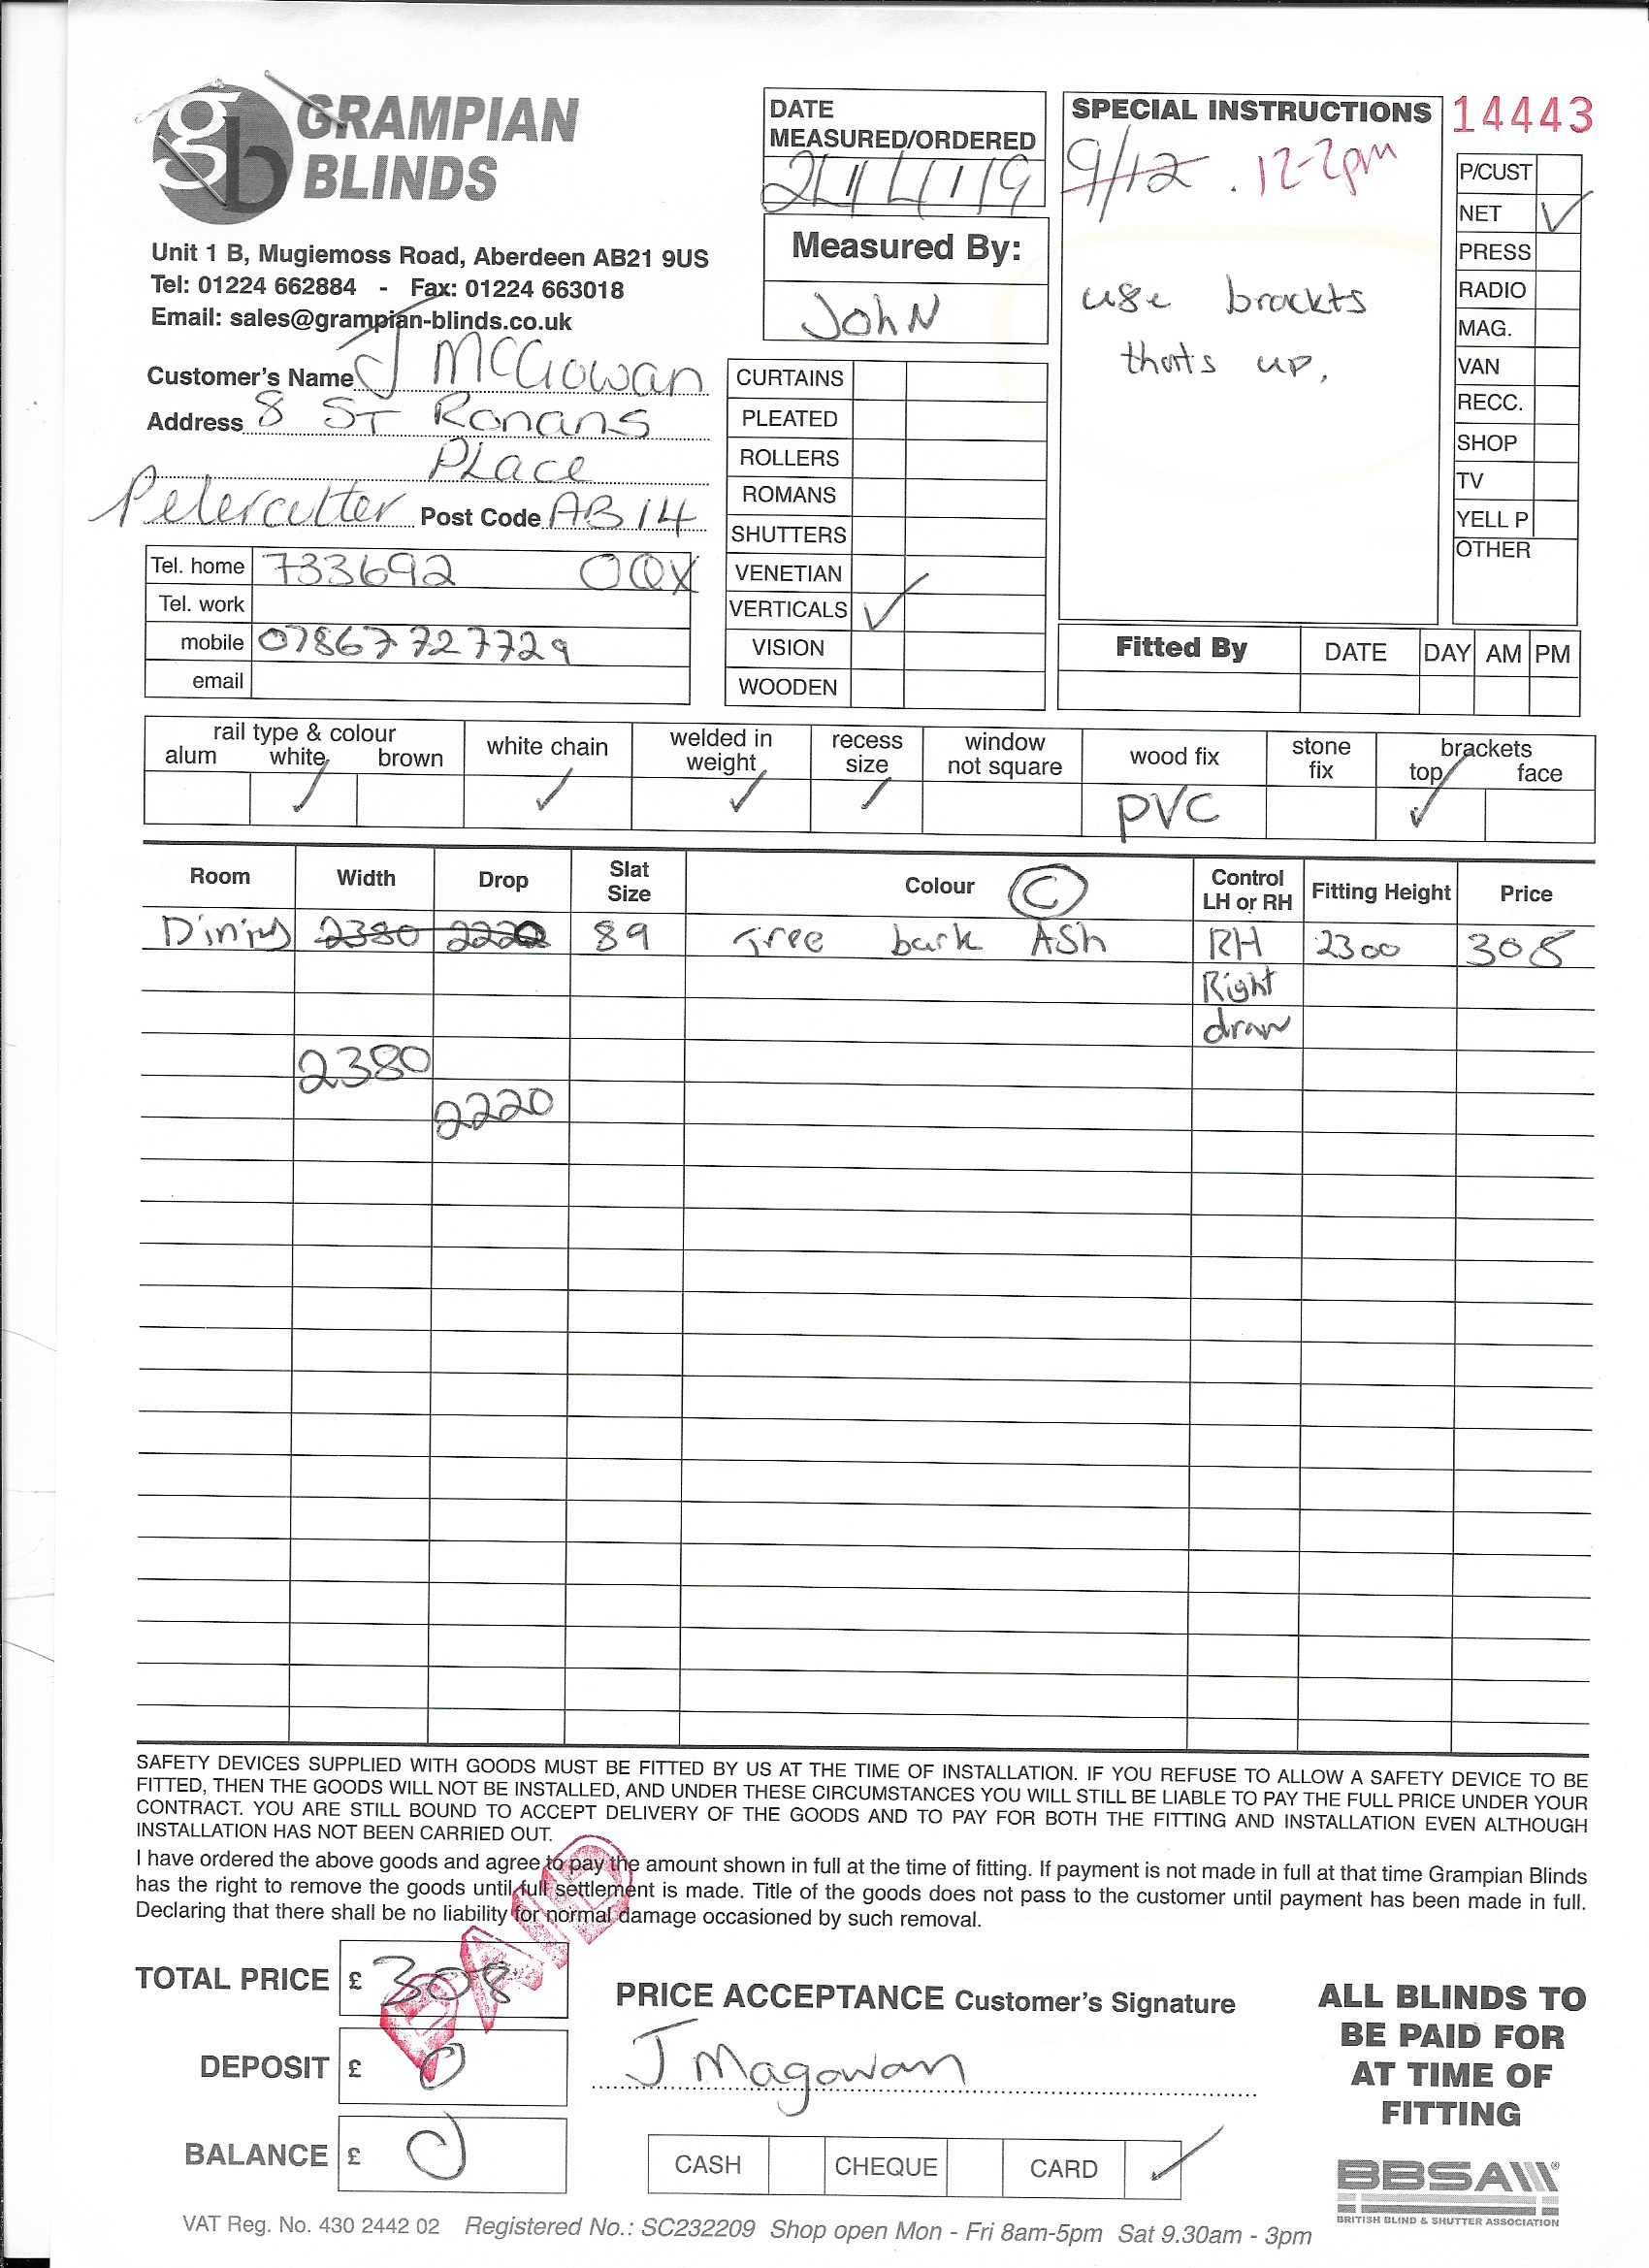 gb GRAMPIAN
BLINDS
Unit 1 B, Mugiemoss Road, Aberdeen AB21 9US
Tel: 01224 662884 - Fax: 01224 663018
Email: sales@grampian-blinds.co.uk
Customer's Name J McGowan
Address 8 ST Ronans
Place
Petercutter Post Code AB14
Tel. home 733692 0QX
Tel. work
mobile 07867727729
email
DATE
MEASURED/ORDERED
Measured By:
John
CURTAINS
PLEATED
ROLLERS
ROMANS
SHUTTERS
VENETIAN
VERTICALS ✓
VISION
WOODEN
SPECIAL INSTRUCTIONS
9/12 . 12-2pm
use brackts
thats up.
14443
P/CUST
NET ✓
PRESS
RADIO
MAG.
VAN
RECC.
SHOP
TV
YELL P
OTHER
Fitted By DATE DAY AM PM
rail type & colour
alum white brown
white chain
welded in
weight
recess
size
window
not square
wood fix
stone
fix
brackets
top face
✓ ✓ ✓ ✓ PVC ✓
Room Width Drop Slat Size Colour C Control LH or RH Fitting Height Price
Dining 2380 2220 89 Tree bark ASh RH 2300 308
Right
draw
2380
2220
SAFETY DEVICES SUPPLIED WITH GOODS MUST BE FITTED BY US AT THE TIME OF INSTALLATION. IF YOU REFUSE TO ALLOW A SAFETY DEVICE TO BE
FITTED, THEN THE GOODS WILL NOT BE INSTALLED, AND UNDER THESE CIRCUMSTANCES YOU WILL STILL BE LIABLE TO PAY THE FULL PRICE UNDER YOUR
CONTRACT. YOU ARE STILL BOUND TO ACCEPT DELIVERY OF THE GOODS AND TO PAY FOR BOTH THE FITTING AND INSTALLATION EVEN ALTHOUGH
INSTALLATION HAS NOT BEEN CARRIED OUT.
I have ordered the above goods and agree to pay the amount shown in full at the time of fitting. If payment is not made in full at that time Grampian Blinds
has the right to remove the goods until full settlement is made. Title of the goods does not pass to the customer until payment has been made in full.
Declaring that there shall be no liability for normal damage occasioned by such removal.
PAID
TOTAL PRICE £ 308
DEPOSIT £ 0
BALANCE £ 0
PRICE ACCEPTANCE Customer's Signature
J Magowan
CASH CHEQUE CARD ✓
ALL BLINDS TO
BE PAID FOR
AT TIME OF
FITTING
BBSA®
BRITISH BLIND & SHUTTER ASSOCIATION
VAT Reg. No. 430 2442 02 Registered No.: SC232209 Shop open Mon - Fri 8am-5pm Sat 9.30am - 3pm